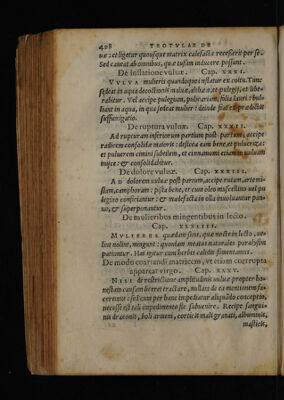 408 TROTVLAE DE
uæ: et ligetur quousque matrix calefacta recesserit per se.
Sed caueat ab omnibus, quæ tussim inducere possunt.
De inflatione vuluæ. Cap. XXXI.
VVLVA mulieris quandoque inflatur ex coitu. Tunc
sedeat in aqua decoctionis maluæ, altheæ et pulegij, et libe-
rabitur. Vel accipe pulegium, puluerem folia lauri: bul-
liant in aqua, in qua sedeat mulier: deinde
suffumigatio.
De ruptura vuluæ. Cap. XXXII.
Ad rupturam inferiorum partium post partum, accipe
radicem consolidæ maioris: desicca eam bene, et pulueriza:
et puluerem cimini subtilem, et cinnamomi etiam in vuluam
mijce: & consolidabitur.
De dolore vuluæ. Cap. XXXIII.
AD dolorem vuluæ post partum, accipe rutam, arte-mi-
siam, camphoram: pista bene, et cum oleo muscellino vel pu
legino conficiantur: & calefacta in olla inuoluantur pan-
no, & superponantur.
De mulieribus mingentibus in lecto.
Cap. XXXIIII.
MVLIERES quædam sunt, quæ nocte in lecto, ve-
lint nolint, mingunt: quoniam meatus naturales paralysim
patiuntur. Has igitur cum herbis calidis fomentamus.
De modo coarctandi matricem, vt etiam corrupta
appareat virgo. Cap. XXXV.
NISI de restrictione amplitudinis vuluæ propter ho-
nestam causam liceret tractare, nullam de ea mentionem fa-
ceremus: sed cum per hanc impediatur aliquando conceptio,
necesse est tali impedimento sic subuenire. Recipe sangui-
nis draconis, boli armeni, corticis mali granati, albuminis,
masticis,